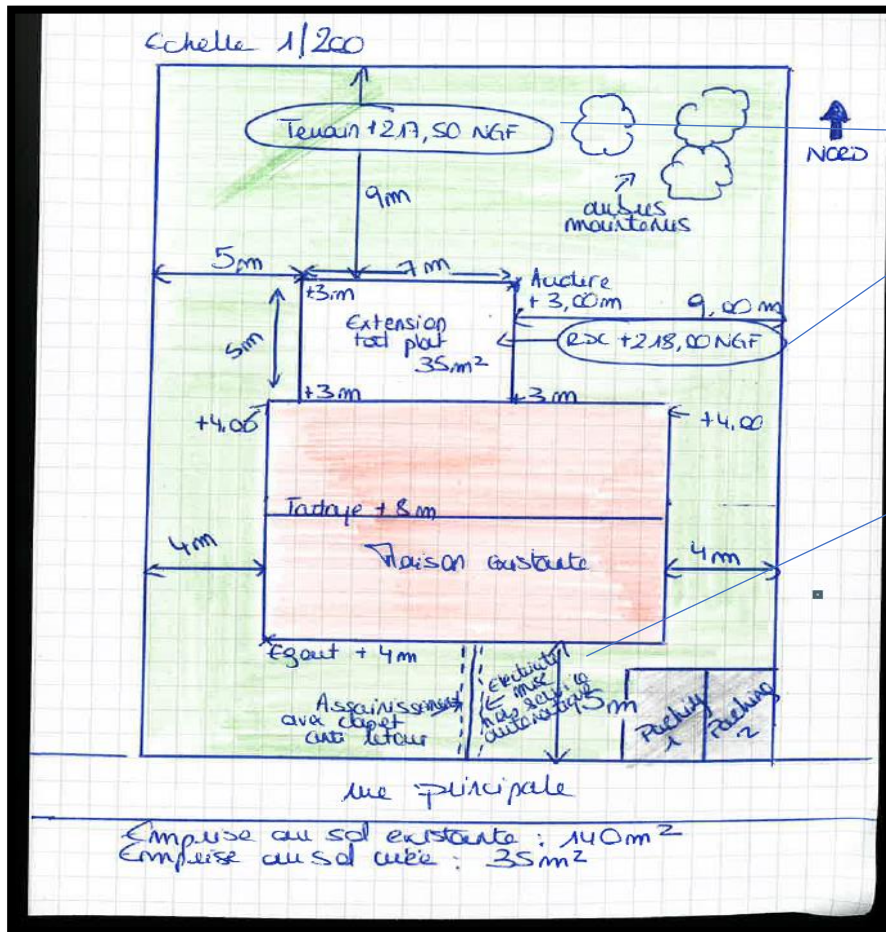 Echelle 1/200
Terrain +217,50 NGF
NORD
9m
arbres
maintenus
5m
7m
Acrotère
+ 3,00m
9,00 m
+3m
Extension
toit plat
35m²
5m
RDC +218,00 NGF
+3m
+3m
+4,00
+4,00
Faitage + 8m
4m
Maison existante
4m
Egout + 4m
Assainissement
avec clapet
anti retour
Electricité
mise
hors service
automatique
5m
Parking
1
Parking
2
rue principale
Emprise au sol existante : 140m²
Emprise au sol créée : 35m²